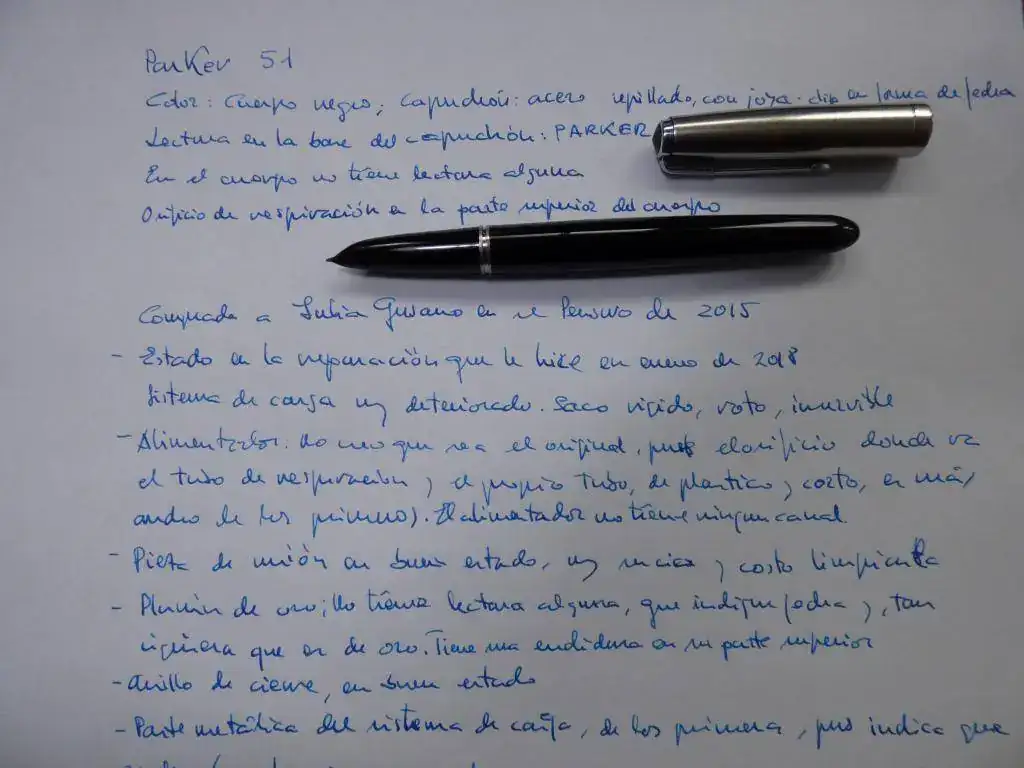 Parker 51
Color: Cuerpo negro; Capuchón: acero cepillado, con joya. clip en forma de flecha
Lectura en la base del capuchón: PARKER
En el cuerpo no tiene lectura alguna
Orificio de respiración en la parte superior del cuerpo
Comprada a Julia en el de 2015
- Estado en la reparación que le hice en enero de 2018
Sistema de carga muy deteriorado. Saco rígido, roto, inservible
- Alimentador. No creo que sea el original, pues el orificio donde va
el tubo de respiración y el propio tubo, de plástico y corto, es más
ancho de los primeros. El alimentador no tiene ningun canal.
- Pieza de unión en buen estado, muy sucia y costo limpiarla
- Plumín de oro; No tiene lectura alguna, que indique fecha y, tan
siquiera que es de oro. Tiene una endidura en su parte superior
- Anillo de cierre, en buen estado
- Parte metálica del sistema de carga, de los primeros, pero indica que